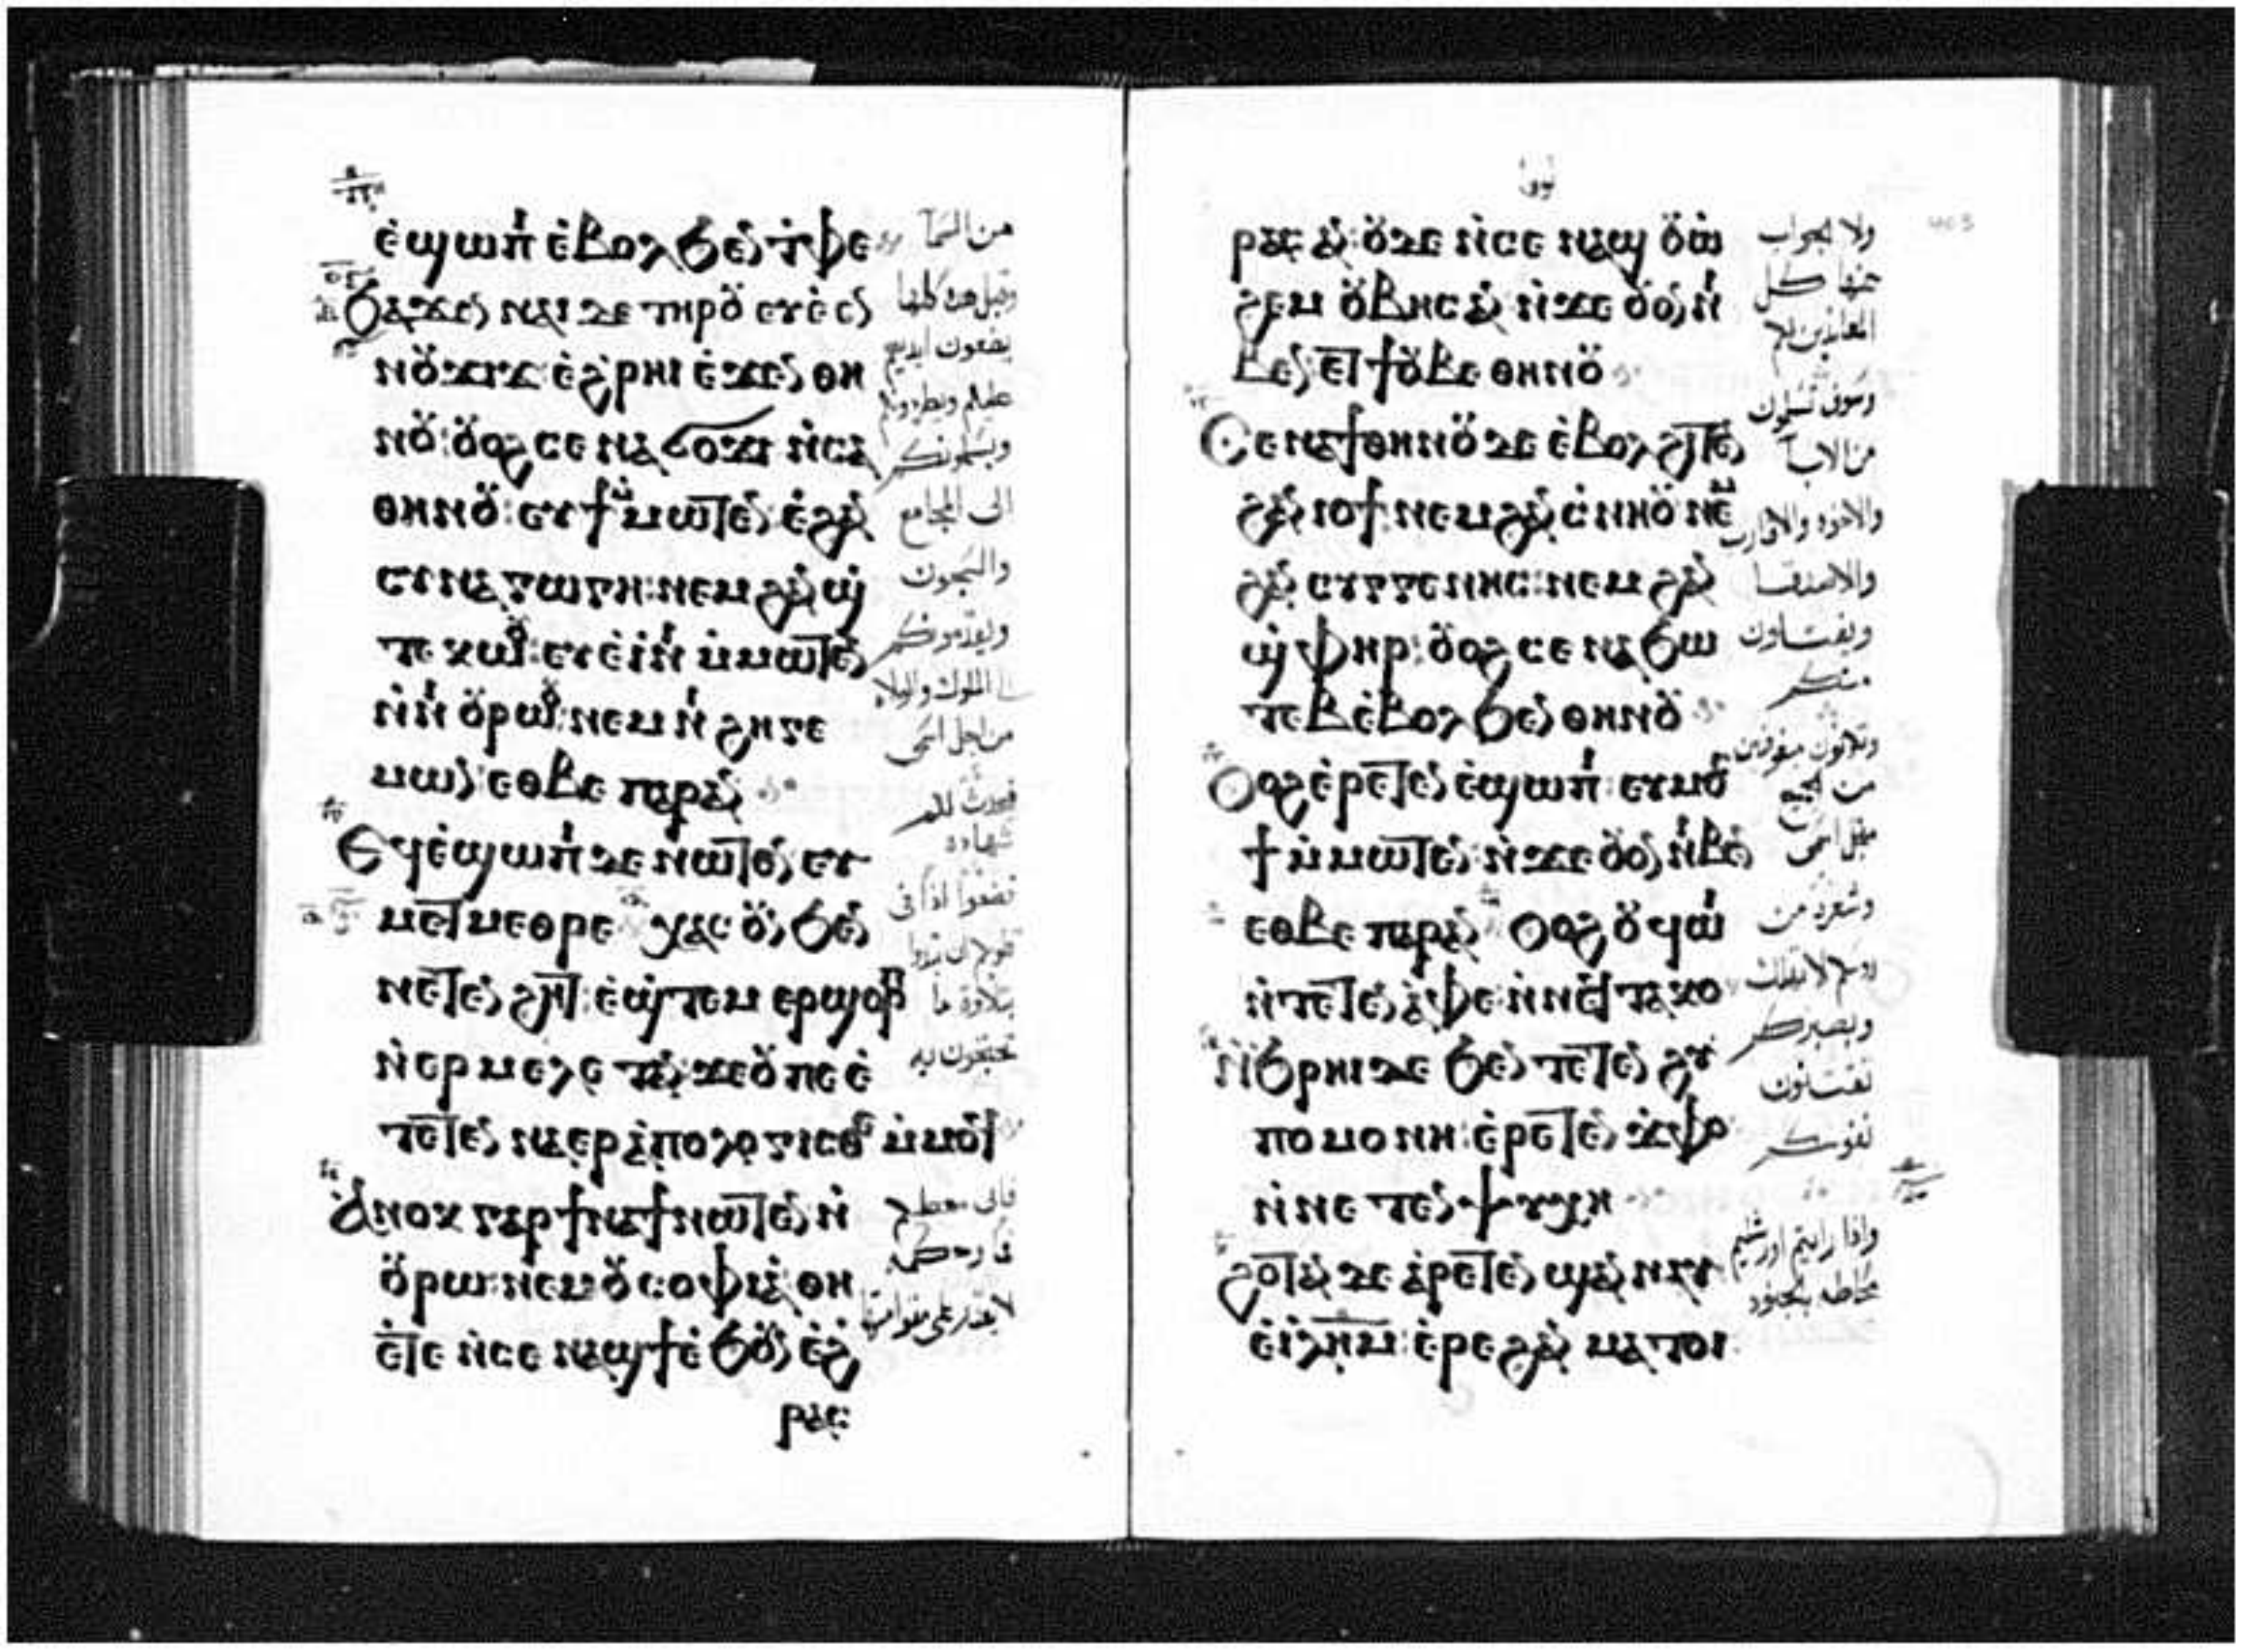 ⲉ̀ϣⲱⲡⲓ ⲉ̀ⲃⲟⲗ ϧⲉⲛ ⲧ̀ⲫⲉ
ϧⲁϫⲉⲛ ⲛⲁⲓ ⲇⲉ ⲧⲏⲣⲟⲩ ⲉⲩⲉ̀ⲉⲛ
ⲛⲟⲩϫⲓϫ ⲉ̀ϩⲣⲏⲓ ⲉ̀ϫⲉⲛ ⲑⲏ
ⲛⲟⲩ ⲟⲩⲟϩ ⲥⲉⲛⲁϭⲟϫⲓ ⲛ̀ⲥⲁ
ⲑⲏⲛⲟⲩ ⲉⲩϯ ⲙ̀ⲙⲱⲧⲉⲛ ⲉ̀ϩⲁⲛ
ⲥⲩⲛⲁⲅⲱⲅⲏ ⲛⲉⲙ ϩⲁⲛ ϣ̀
ⲧⲉⲕⲱⲟⲩ ⲉⲩⲉ̀ⲓ̀ⲛⲓ ⲙ̀ⲙⲱⲧⲉⲛ
ⲛ̀ⲛⲓ ⲟⲩⲣⲱⲟⲩ ⲛⲉⲙ ⲛⲓ ϩⲏⲅⲉ
ⲙⲱⲛ ⲉⲑⲃⲉ ⲡⲁⲣⲁⲛ
Ⲉϥⲉ̀ϣⲱⲡⲓ ⲇⲉ ⲛⲱⲧⲉⲛ ⲉⲩ
ⲙⲉⲧⲙⲉⲑⲣⲉ ⲭⲁⲥ ⲟⲩⲛ ϧⲉⲛ
ⲛⲉⲧⲉⲛϩⲏⲧ ⲉ̀ϣ̀ⲧⲉⲙ ⲉⲣϣⲟⲣⲡ
ⲛ̀ⲉⲣⲙⲉⲗⲉⲧⲁⲛ ϫⲉ ⲟⲩ ⲡⲉ ⲉ̀
ⲧⲉⲧⲉⲛⲛⲁⲉⲣⲁ̀ⲡⲟⲗⲟⲅⲓⲥⲑⲉ ⲙ̀ⲙⲟϥ
Ⲁ̀ⲛⲟⲕ ⲅⲁⲣ ϯⲛⲁϯ ⲛⲱⲧⲉⲛ ⲛ̀
ⲟⲩⲣⲱ ⲛⲉⲙ ⲟⲩⲥⲟⲫⲓⲁ̀ ⲑⲏ
ⲉ̀ⲧⲉ ⲛ̀ⲥⲉⲛⲁϣϯ ⲉ̀ϧⲟⲩⲛ ⲉ̀ϩ
ⲣⲁⲥ
من السما
وقبل هذه كلها
يضعون ايديهم
عليكم ويطردونكم
ويسلمونكم
الى المجامع
والسجون
ويقدمونكم
الى الملوك والولاه
من اجل اسمى
فيحدث لكم
شهاده
فضعوا اذا فى
قلوبكم ان تبدوا
بتلاوة ما
تحتجون به
فانى معطيكم
فما وحكمه
لا يقدر على مقوامتها
ⲣⲁⲥ ⲁⲛ ⲟⲩⲇⲉ ⲛ̀ⲥⲉⲛⲁϣ ⲟⲩⲱ̀
ϩⲉⲙ ⲟⲩⲃⲏⲥ ⲁⲛ ⲛ̀ϫⲉ ⲟⲩⲟⲛ ⲛⲓ
ⲃⲉⲛ ⲉⲧϯ ⲟⲩⲃⲉ ⲑⲏⲛⲟⲩ
Ⲥⲉⲛⲁϯ ⲑⲏⲛⲟⲩ ⲇⲉ ⲉ̀ⲃⲟⲗ ϩⲓⲧⲉⲛ
ϩⲁⲛ ⲓⲟϯ ⲛⲉⲙ ϩⲁⲛ ⲥ̀ⲛⲏⲟⲩ ⲛⲉⲙ
ϩⲁⲛ ⲥⲩⲅⲅⲉⲛⲏⲥ ⲛⲉⲙ ϩⲁⲛ
ϣ̀ⲫⲏⲣ ⲟⲩⲟϩ ⲥⲉⲛⲁϧⲱ
ⲧⲉⲃ ⲉ̀ⲃⲟⲗ ϧⲉⲛ ⲑⲏⲛⲟⲩ
Ⲟⲩⲟϩ ⲉ̀ⲣⲉⲧⲉⲛⲉ̀ϣⲱⲡⲓ ⲉⲩⲙⲟⲥ
ϯ ⲙ̀ⲙⲱⲧⲉⲛ ⲛ̀ϫⲉ ⲟⲩⲟⲛ ⲛⲓⲃⲉⲛ
ⲉⲑⲃⲉ ⲡⲁⲣⲁⲛ Ⲟⲩⲟϩ ⲟⲩϥⲱⲓ
ⲛ̀ⲧⲉⲧⲉⲛⲁ̀ⲫⲉ ⲛ̀ⲛⲉϥⲧⲁⲕⲟ
Ⲛ̀ϧⲣⲏⲓ ⲇⲉ ϧⲉⲛ ⲧⲉⲧⲉⲛϩⲩ
ⲡⲟⲙⲟⲛⲏ ⲉ̀ⲣⲉⲧⲉⲛⲉ̀ϫⲫⲟ
ⲛ̀ⲛⲉⲧⲉⲛⲯⲩⲭⲏ
ϩⲟⲧⲁⲛ ⲇⲉ ⲁ̀ⲣⲉⲧⲉⲛϣⲁⲛⲛⲁⲩ
ⲉ̀ⲓ̀ⲗⲏⲙ ⲉ̀ⲣⲉ ϩⲁⲛ ⲙⲁⲧⲟⲓ
ولا يجواب
عنها كل
المعاندين لكم
وسوف تسلمون
من الابآ
والاخوه والاقارب
والاصدقا
ويقتلون
منكم
وتكونون مبغوضين
من الجميع
من اجل اسمى
وشعرة من
روسكم لا تهلك
وبصبركم
تقتنون
نفوسكم
واذا رايتم اورشليم
محاطه بجنود